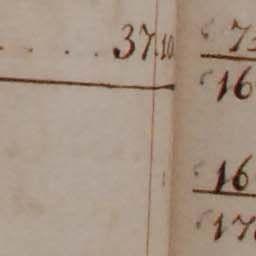 . . . . 37.10
7
16
16
17